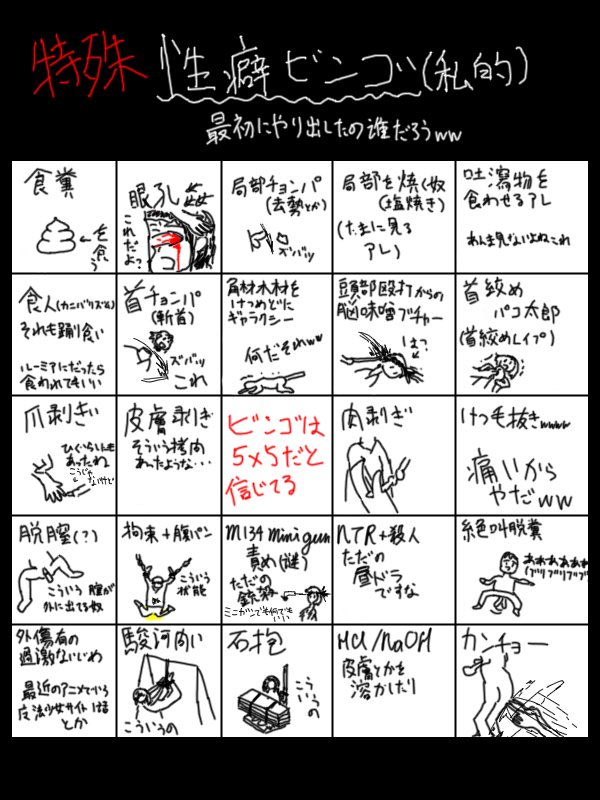 特殊 性癖ビンゴ(私的)
最初にやり出したの誰だろうww
食糞
←を食う
眼孔姦
これだよ?
局部チョンパ
(去勢とか)
ズバッ
局部を焼く奴
(塩焼き)
(たまに見る
アレ)
吐瀉物を
食わせるアレ
あんま見ないよねこれ
食人(カニバリズム)
それも踊り食い
ルーミアにだったら
食われてもいい
首チョンパ
(斬首)
ズバッ
これ
角材木材を
けつめどに
ギャラクシー
何だそれww
頭部殴打からの
脳味噌ブチャー
はっ?
首絞め
パコ太郎
(首絞めレイプ)
爪剥ぎ
ひぐらしにも
あったわ
こうじゃ
ないけど
皮膚剥ぎ
そういう拷問
あったような…
ビンゴは
5×5だと
信じてる
肉剥ぎ
けつ毛抜きwwww
痛いから
やだww
脱膣(?)
こういう膣が
外に出てる奴
拘束+腹パン
こういう
状態
M134 minigun
責め(謎)
ただの
銃殺
ミニガンでも何でも
いい
NTR+殺人
ただの
昼ドラ
ですな
絶叫脱糞
ああああああ
(ブリブリブリブリ
外傷有の
過激ないじめ
最近のアニメでいう
魔法少女サイト1話
とか
駿河問い
こういうの
石抱
こういうの
HCl/NaOH
皮膚とかを
溶かしたり
カンチョー